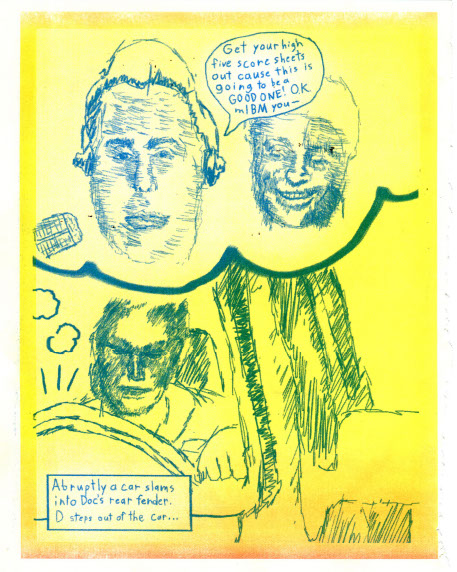 Get your high
five score sheets
out cause this is
going to be a
GOOD ONE! O.K
mIBM you—
Abruptly a car slams
into Doc's rear fender.
D steps out of the car...